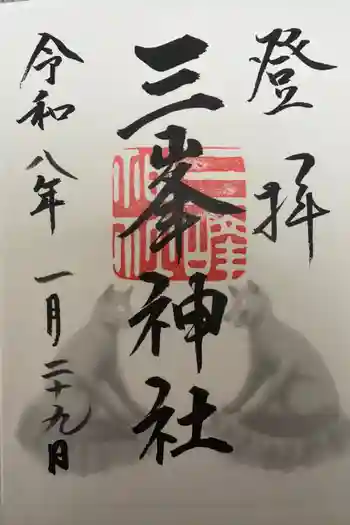 登拝
三峯神社
令和八年一月二十九日